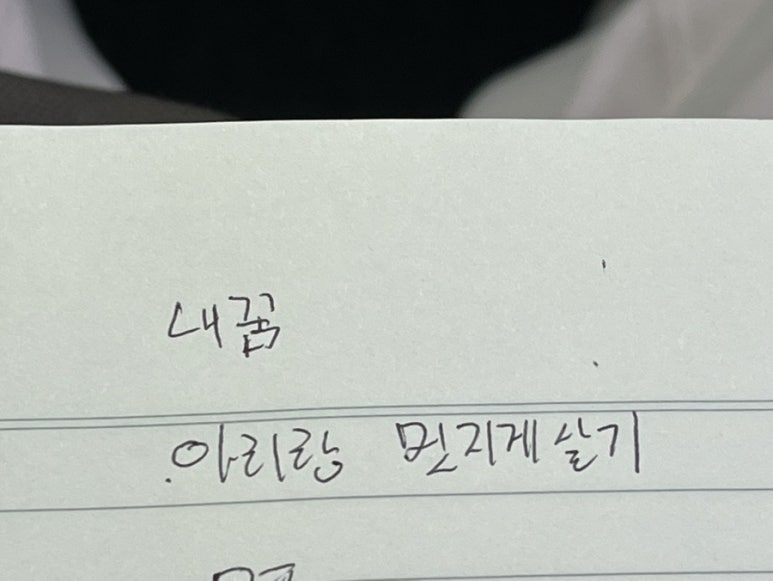 내꿈
.아리랑 멋지게살기